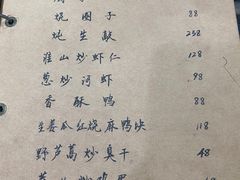 烧圈子 88
炖生敲 238
淮山炒虾仁 128
葱炒河虾 98
香酥鸭 88
生姜瓜红烧麻鸭块 118
野芦蒿炒臭干 48